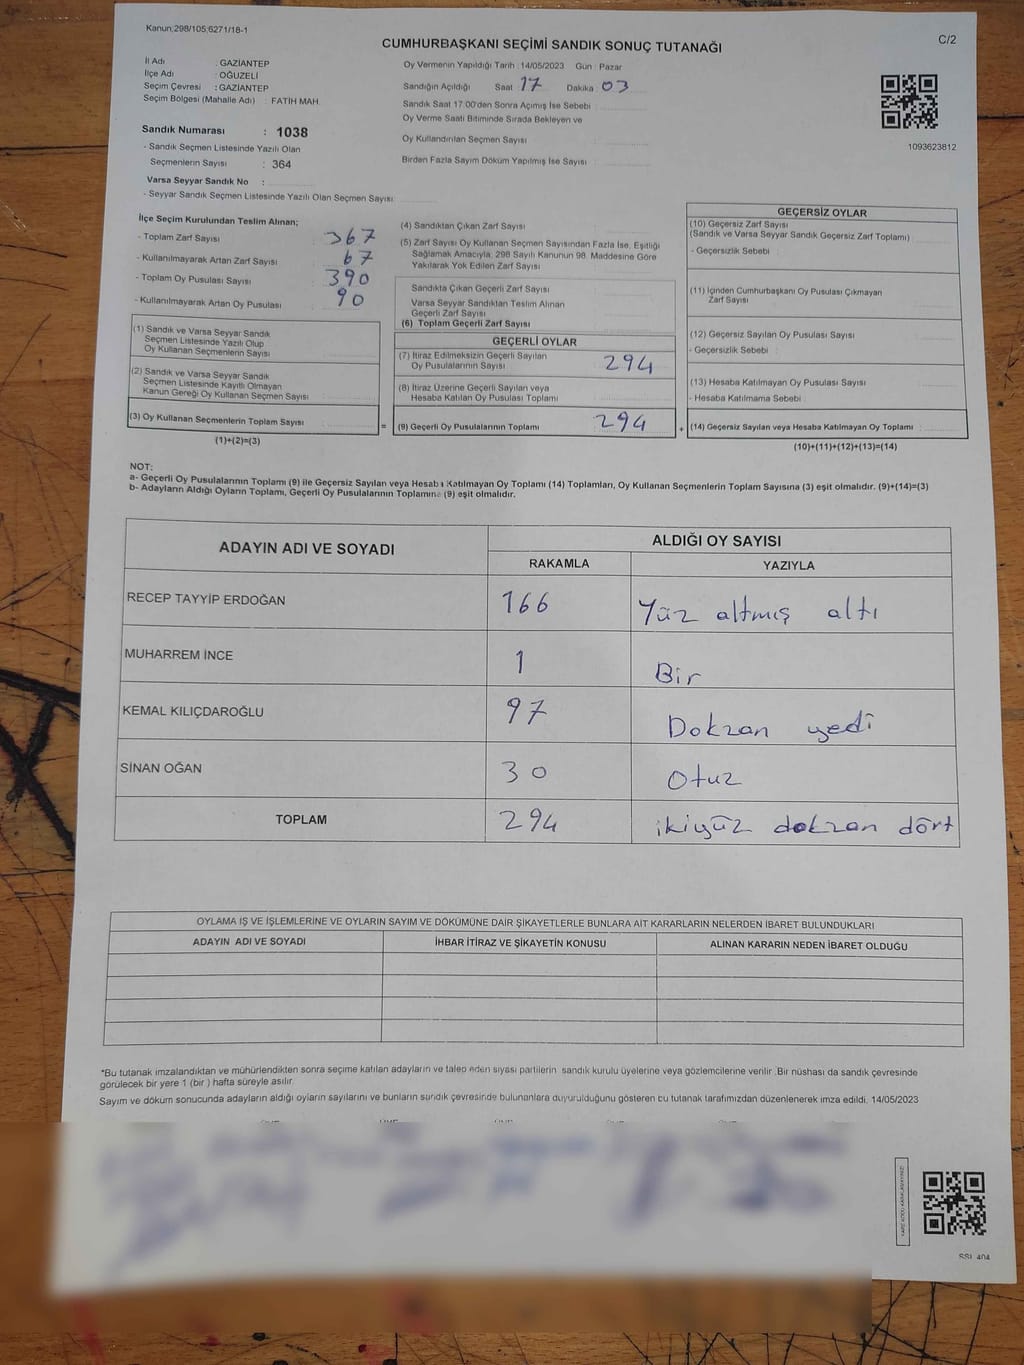 Kanun;298/105;6271/18-1
C/2
CUMHURBAŞKANI SEÇİMİ SANDIK SONUÇ TUTANAĞI
İl Adı : GAZİANTEP
İlçe Adı : OĞUZELİ
Seçim Çevresi : GAZİANTEP
Seçim Bölgesi (Mahalle Adı) : FATİH MAH.
Sandık Numarası : 1038
- Sandık Seçmen Listesinde Yazılı Olan
Seçmenlerin Sayısı : 364
Varsa Seyyar Sandık No :
- Seyyar Sandık Seçmen Listesinde Yazılı Olan Seçmen Sayısı:
Oy Vermenin Yapıldığı Tarih :14/05/2023 Gün : Pazar
Sandığın Açıldığı Saat : 17 Dakika : 03
Sandık Saat 17:00'den Sonra Açımış İse Sebebi :
Oy Verme Saati Bitiminde Sırada Bekleyen ve
Oy Kullandırılan Seçmen Sayısı :
Birden Fazla Sayım Döküm Yapılmış İse Sayısı :
1093623812
İlçe Seçim Kurulundan Teslim Alınan;
- Toplam Zarf Sayısı : 367
- Kullanılmayarak Artan Zarf Sayısı : 67
- Toplam Oy Pusulası Sayısı : 390
- Kullanılmayarak Artan Oy Pusulası : 90
(1) Sandık ve Varsa Seyyar Sandık
Seçmen Listesinde Yazılı Olup
Oy Kullanan Seçmenlerin Sayısı :
(2) Sandık ve Varsa Seyyar Sandık
Seçmen Listesinde Kayıtlı Olmayan
Kanun Gereği Oy Kullanan Seçmen Sayısı :
(3) Oy Kullanan Seçmenlerin Toplam Sayısı :
(1)+(2)=(3)
(4) Sandıktan Çıkan Zarf Sayısı :
(5) Zarf Sayısı Oy Kullanan Seçmen Sayısından Fazla İse, Eşitliği
Sağlamak Amacıyla, 298 Sayılı Kanunun 98. Maddesine Göre
Yakılarak Yok Edilen Zarf Sayısı :
Sandıkta Çıkan Geçerli Zarf Sayısı :
Varsa Seyyar Sandıktan Teslim Alınan
Geçerli Zarf Sayısı :
(6) Toplam Geçerli Zarf Sayısı :
GEÇERLİ OYLAR
(7) İtiraz Edilmeksizin Geçerli Sayılan
Oy Pusulalarının Sayısı : 294
(8) İtiraz Üzerine Geçerli Sayılan veya
Hesaba Katılan Oy Pusulası Toplamı :
= (9) Geçerli Oy Pusulalarının Toplamı : 294 +
GEÇERSİZ OYLAR
(10) Geçersiz Zarf Sayısı
(Sandık ve Varsa Seyyar Sandık Geçersiz Zarf Toplamı) :
- Geçersizlik Sebebi :
(11) İçinden Cumhurbaşkanı Oy Pusulası Çıkmayan
Zarf Sayısı :
(12) Geçersiz Sayılan Oy Pusulası Sayısı :
- Geçersizlik Sebebi :
(13) Hesaba Katılmayan Oy Pusulası Sayısı :
- Hesaba Katılmama Sebebi :
(14) Geçersiz Sayılan veya Hesaba Katılmayan Oy Toplamı :
(10)+(11)+(12)+(13)=(14)
NOT:
a- Geçerli Oy Pusulalarının Toplamı (9) ile Geçersiz Sayılan veya Hesaba Katılmayan Oy Toplamı (14) Toplamları, Oy Kullanan Seçmenlerin Toplam Sayısına (3) eşit olmalıdır. (9)+(14)=(3)
b- Adayların Aldığı Oyların Toplamı, Geçerli Oy Pusulalarının Toplamına (9) eşit olmalıdır.
ADAYIN ADI VE SOYADI ALDIĞI OY SAYISI
RAKAMLA YAZIYLA
RECEP TAYYİP ERDOĞAN 166 Yüz altmış altı
MUHARREM İNCE 1 Bir
KEMAL KILIÇDAROĞLU 97 Dokzan yedi
SİNAN OĞAN 30 Otuz
TOPLAM 294 ikiyüz dokzan dört
OYLAMA İŞ VE İŞLEMLERİNE VE OYLARIN SAYIM VE DÖKÜMÜNE DAİR ŞİKAYETLERLE BUNLARA AİT KARARLARIN NELERDEN İBARET BULUNDUKLARI
ADAYIN ADI VE SOYADI İHBAR İTİRAZ VE ŞİKAYETİN KONUSU ALINAN KARARIN NEDEN İBARET OLDUĞU
*Bu tutanak imzalandıktan ve mühürlendikten sonra seçime katılan adayların ve talep eden siyasi partilerin sandık kurulu üyelerine veya gözlemcilerine verilir .Bir nüshası da sandık çevresinde
görülecek bir yere 1 (bir ) hafta süreyle asılır.
Sayım ve döküm sonucunda adayların aldığı oyların sayılarını ve bunların sandık çevresinde bulunanlara duyurulduğunu gösteren bu tutanak tarafımızdan düzenlenerek imza edildi. 14/05/2023